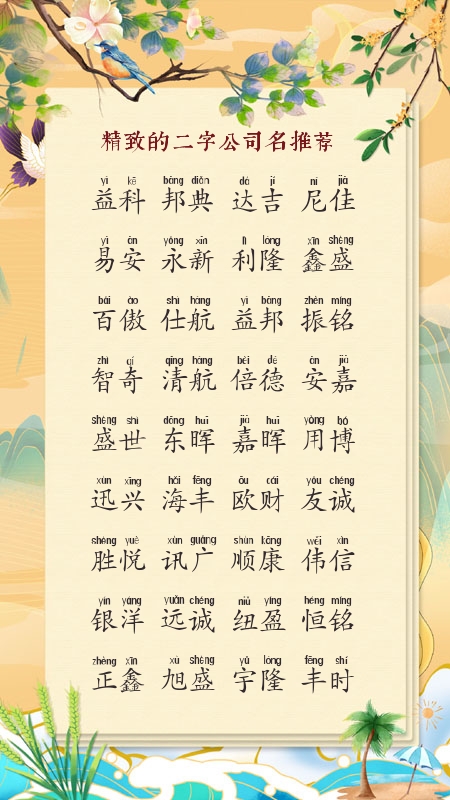 精致的二字公司名推荐
yì kē bāng diǎn dá jí ní jiā
益科 邦典 达吉 尼佳
yì ān yǒng xīn lì lóng xīn shèng
易安 永新 利隆 鑫盛
bǎi ào shì háng yì bāng zhèn míng
百傲 仕航 益邦 振铭
zhì qí qīng háng bèi dé ān jiā
智奇 清航 倍德 安嘉
shèng shì dōng huī jiā huī yòng bó
盛世 东晖 嘉晖 用博
xùn xīng hǎi fēng ōu cái yǒu chéng
迅兴 海丰 欧财 友诚
shèng yuè xùn guǎng shùn kāng wěi xìn
胜悦 讯广 顺康 伟信
yín yáng yuǎn chéng niǔ yíng héng míng
银洋 远诚 纽盈 恒铭
zhèng xīn xù shèng yǔ lóng fēng shí
正鑫 旭盛 宇隆 丰时